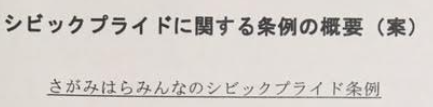 シビックプライドに関する条例の概要（案）
さがみはらみんなのシビックプライド条例